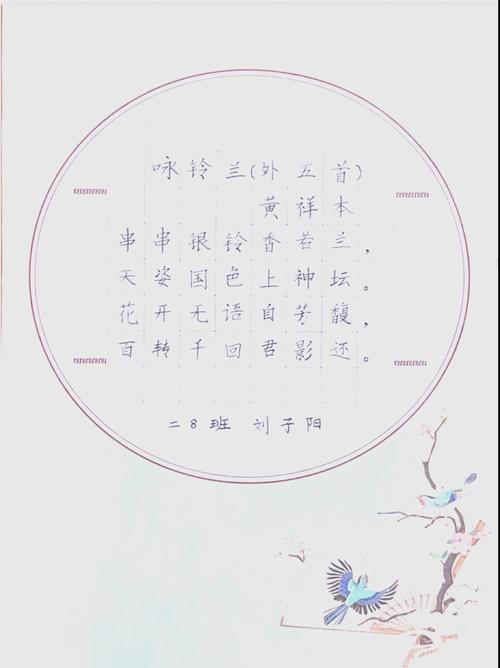 咏铃兰(外五首)
黄祥本
串串银铃香若兰，
天姿国色上神坛。
花开无语自芳馥，
百转千回君影还。
二8班 刘子阳